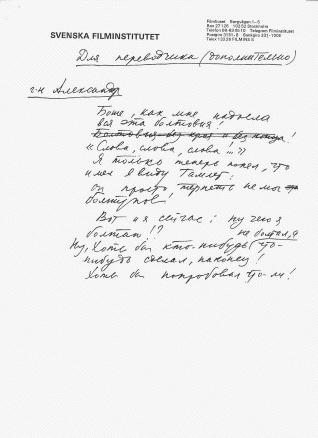 SVENSKA FILMINSTITUTET
Filmhuset Borgvägen 1–5
Box 27 126 102 52 Stockholm
Telefon 08-63 05 10 Telegram Filminstitutet
Telex 133 26 FILMINS S
Для переводчика (дополнительно)
г-н Александр
Боже, как мне надоела
вся эта болтовня!
Болтовня без края и без конца!
«Слова, слова, слова!...»
Я только теперь понял, что
имел в виду Гамлет:
он просто терпеть не мог
болтунов!
Вот и я сейчас: ну чего я
болтаю!? не болтал,а
Ну, Хоть бы кто-нибудь что-
нибудь сделал, наконец!
Хоть бы попробовал что-ли!